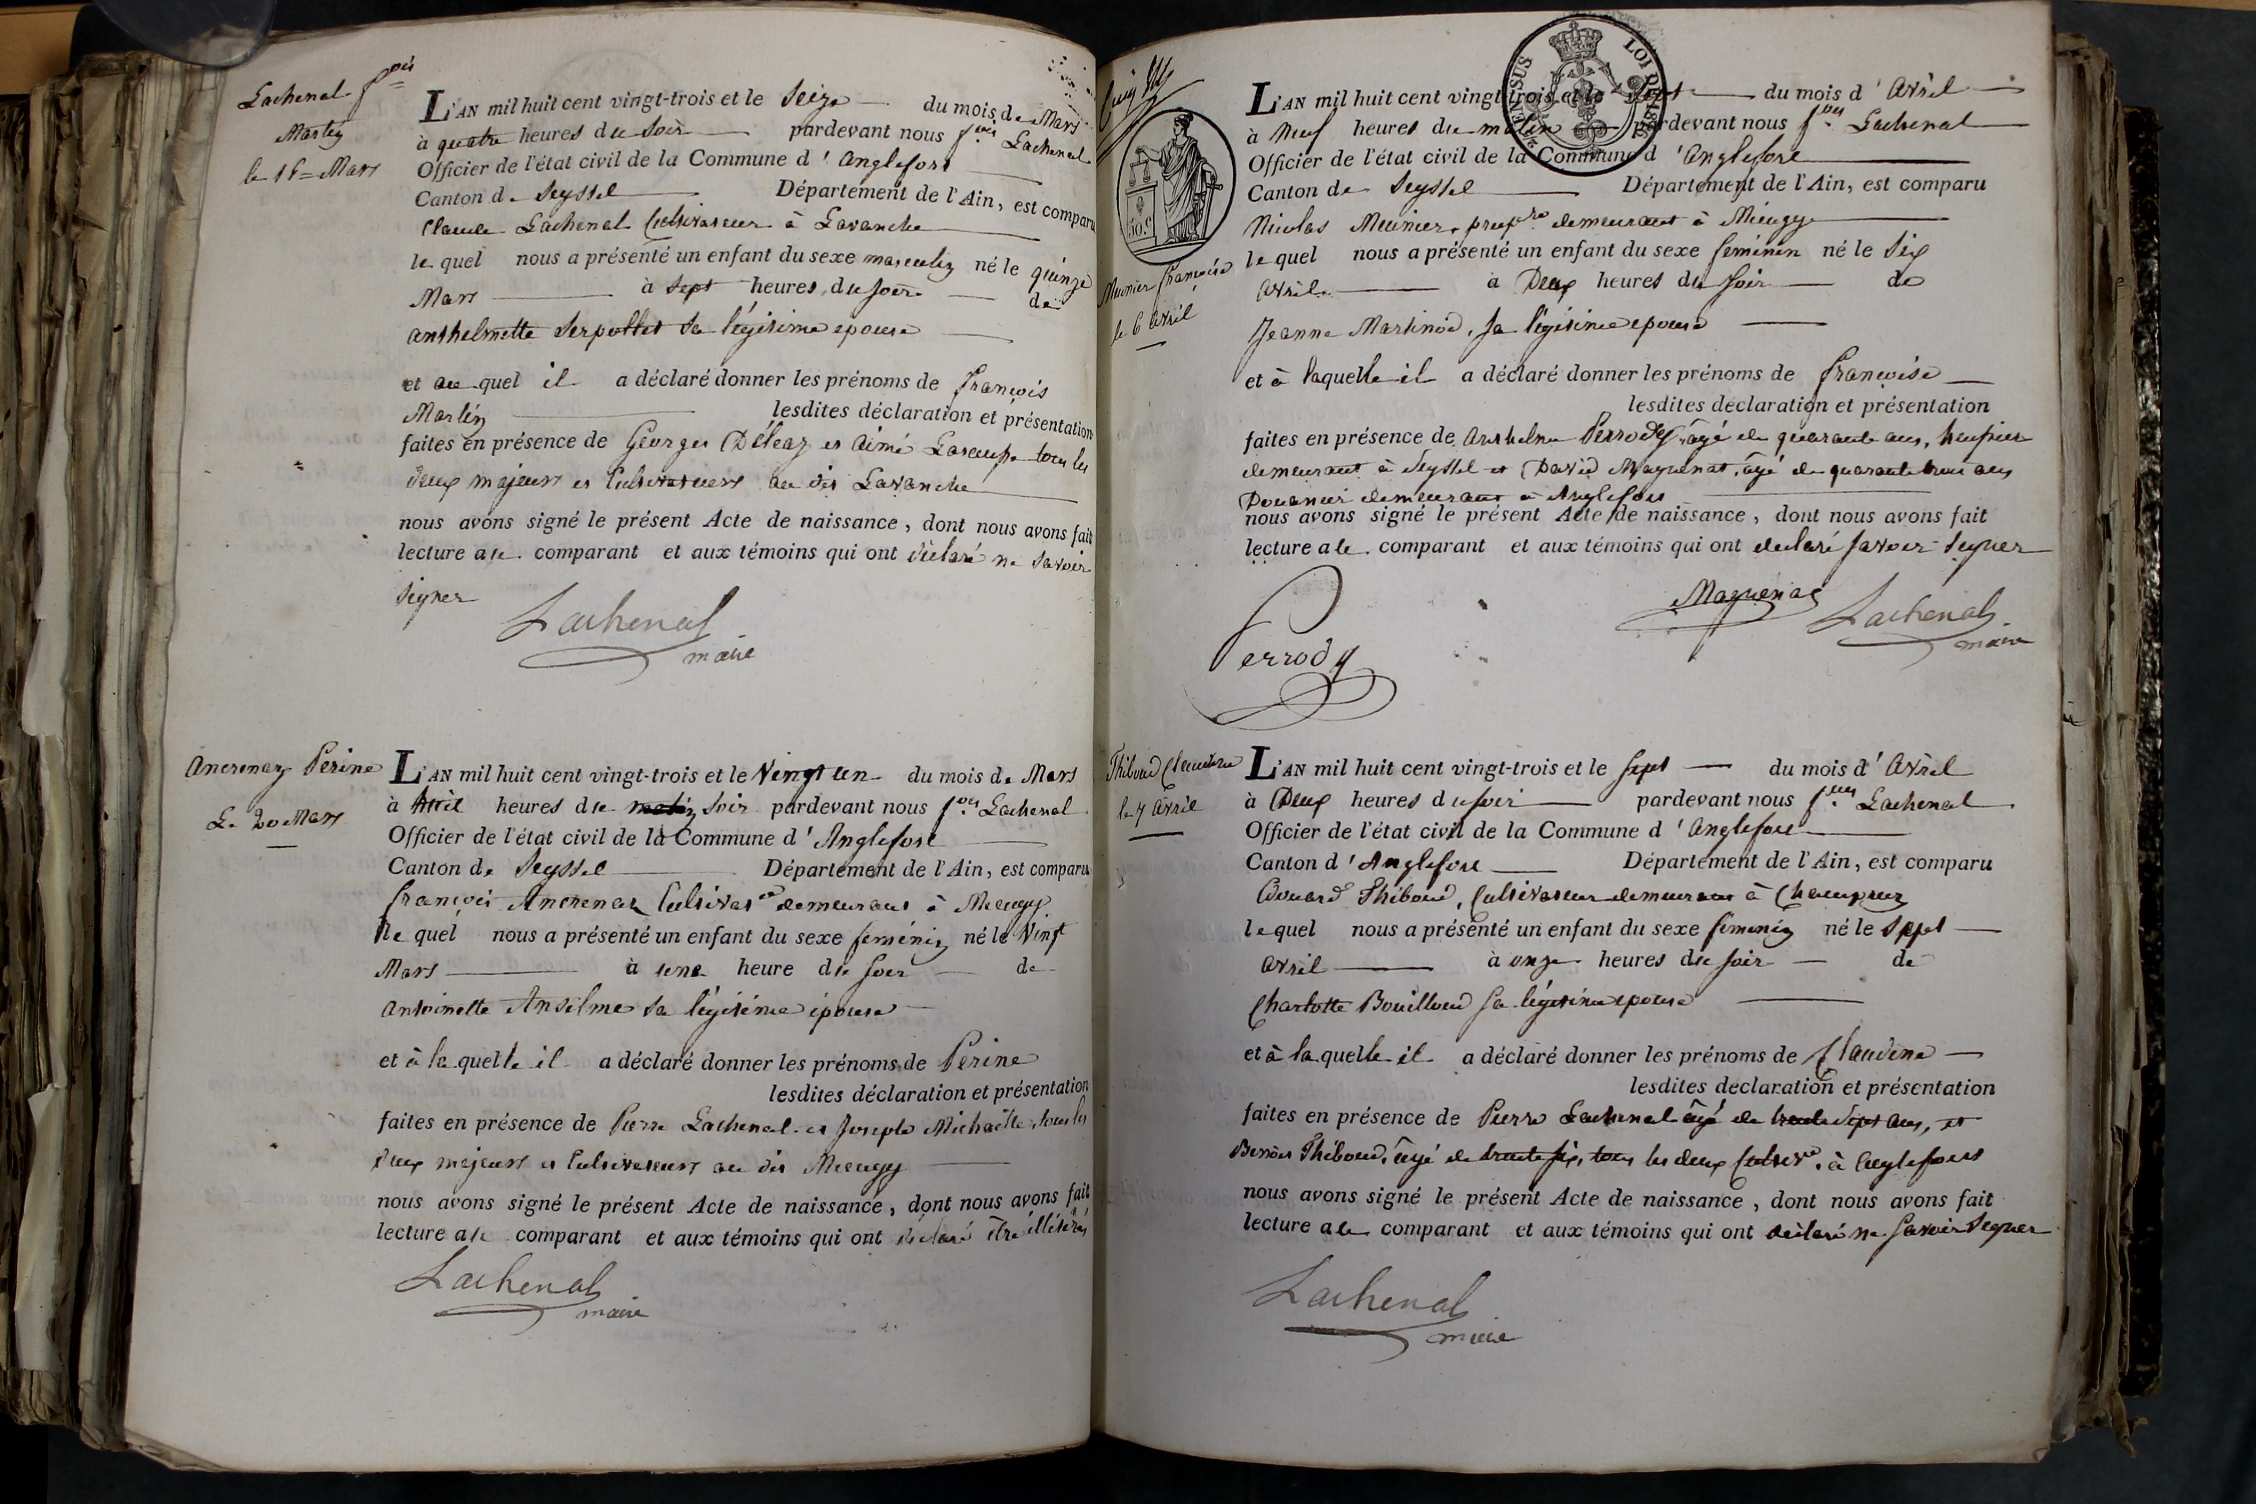 Lachenal f.ois
Martin
le 15 = Mars
L'AN mil huit cent vingt-trois et le Seize du mois de Mars
à quatre heures du soir pardevant nous f.ois Lachenal
Officier de l'état civil de la Commune d'Anglefort
Canton de Seyssel Département de l'Ain, est comparu
Claude Lachenal Cultivateur à Lavanche
le quel nous a présenté un enfant du sexe masculin né le quinze
Mars à sept heures du soir de
anthelmette Serpollet sa légitime epouse
et au quel il a déclaré donner les prénoms de françois
Martin lesdites déclaration et présentation
faites en présence de Georges Déléaz et Aimé tous les
deux majeurs et Cultivateurs au dit Lavanche
nous avons signé le présent Acte de naissance, dont nous avons fait
lecture a le comparant et aux témoins qui ont déclaré ne savoir
signer
Lachenal
maire
Ancrenaz Perine
Le 20 Mars
L'AN mil huit cent vingt-trois et le Vingt un du mois de Mars
à huit heures du matin soir pardevant nous f.ois Lachenal
Officier de l'état civil de la Commune d'Anglefort
Canton de Seyssel Département de l'Ain, est comparu
françois Ancrenaz Cultivat.r demeurant à Mieugy
le quel nous a présenté un enfant du sexe feminin né le Vingt
Mars à une heure du soir de
Antoinette Anselme sa légitime épouse
et à la quelle il a déclaré donner les prénoms de Perine
lesdites déclaration et présentation
faites en présence de Pierre Lachenal et Joseph Michaëlle tous les
deux majeurs et Cultivateurs au dit Mieugy
nous avons signé le présent Acte de naissance, dont nous avons fait
lecture a le comparant et aux témoins qui ont déclaré être illétérés
Lachenal
maire
LOI DE 1816
50. C
Meunier françoise
le 6 avril
L'AN mil huit cent vingt-trois et le Sept du mois d'Avril
à Neuf heures du matin pardevant nous f.ois Lachenal
Officier de l'état civil de la Commune d'Anglefort
Canton de Seyssel Département de l'Ain, est comparu
Nicolas Meunier, prop.re demeurant à Mieugy
le quel nous a présenté un enfant du sexe feminin né le Six
avril à Deux heures du soir de
Jeanne Martinod, sa légitime epouse
et à laquelle il a déclaré donner les prénoms de françoise
lesdites déclaration et présentation
faites en présence de Anthelme Perrody, âgé de quarante ans, huissier
demeurant à Seyssel et David Maguenat, âgé de quarante trois ans
Douanier demeurant à Anglefort
nous avons signé le présent Acte de naissance, dont nous avons fait
lecture a le comparant et aux témoins qui ont declaré savoir signer
Maguenat
Lachenal
maire
Perrody
Thiboud Claudine
le 7 avril
L'AN mil huit cent vingt-trois et le sept du mois d'Avril
à Deux heures du soir pardevant nous f.ois Lachenal
Officier de l'état civil de la Commune d'Anglefort
Canton d'Anglefort Département de l'Ain, est comparu
Edouard Thiboud, Cultivateur demeurant à
le quel nous a présenté un enfant du sexe féminin né le Sept
avril à onze heures du soir de
Charlotte Bouilloud sa légitime epouse
et à la quelle il a déclaré donner les prénoms de Claudine
lesdites déclaration et présentation
faites en présence de Pierre Lachenal âgé de trente sept ans, et
Benoit Thiboud, âgé de trente six, tous les deux Cultiv.r, à Anglefort
nous avons signé le présent Acte de naissance, dont nous avons fait
lecture a le comparant et aux témoins qui ont déclaré ne savoir signer
Lachenal
maire